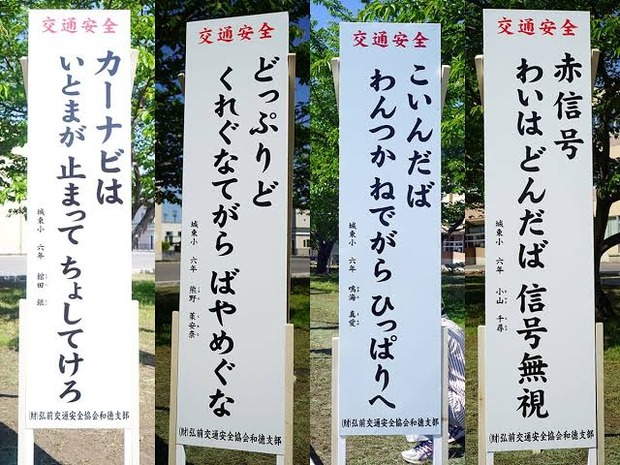 交通安全
カーナビは
いとまが 止まって ちょしてけろ
城東小 六年 舘田 眼
(財)弘前交通安全協会和德支部
交通安全
どっぷりど
くれぐなてがら ばやめぐな
城東小 六年 熊野 茉安奈
(財)弘前交通安全協会和德支部
交通安全
こいんだば
わんつか ねでがら ひっぱりへ
城東小 六年 鳴海 真愛
(財)弘前交通安全協会和德支部
交通安全
赤信号
わいは どんだば 信号無視
城東小 六年 小山 千尋
(財)弘前交通安全協会和德支部